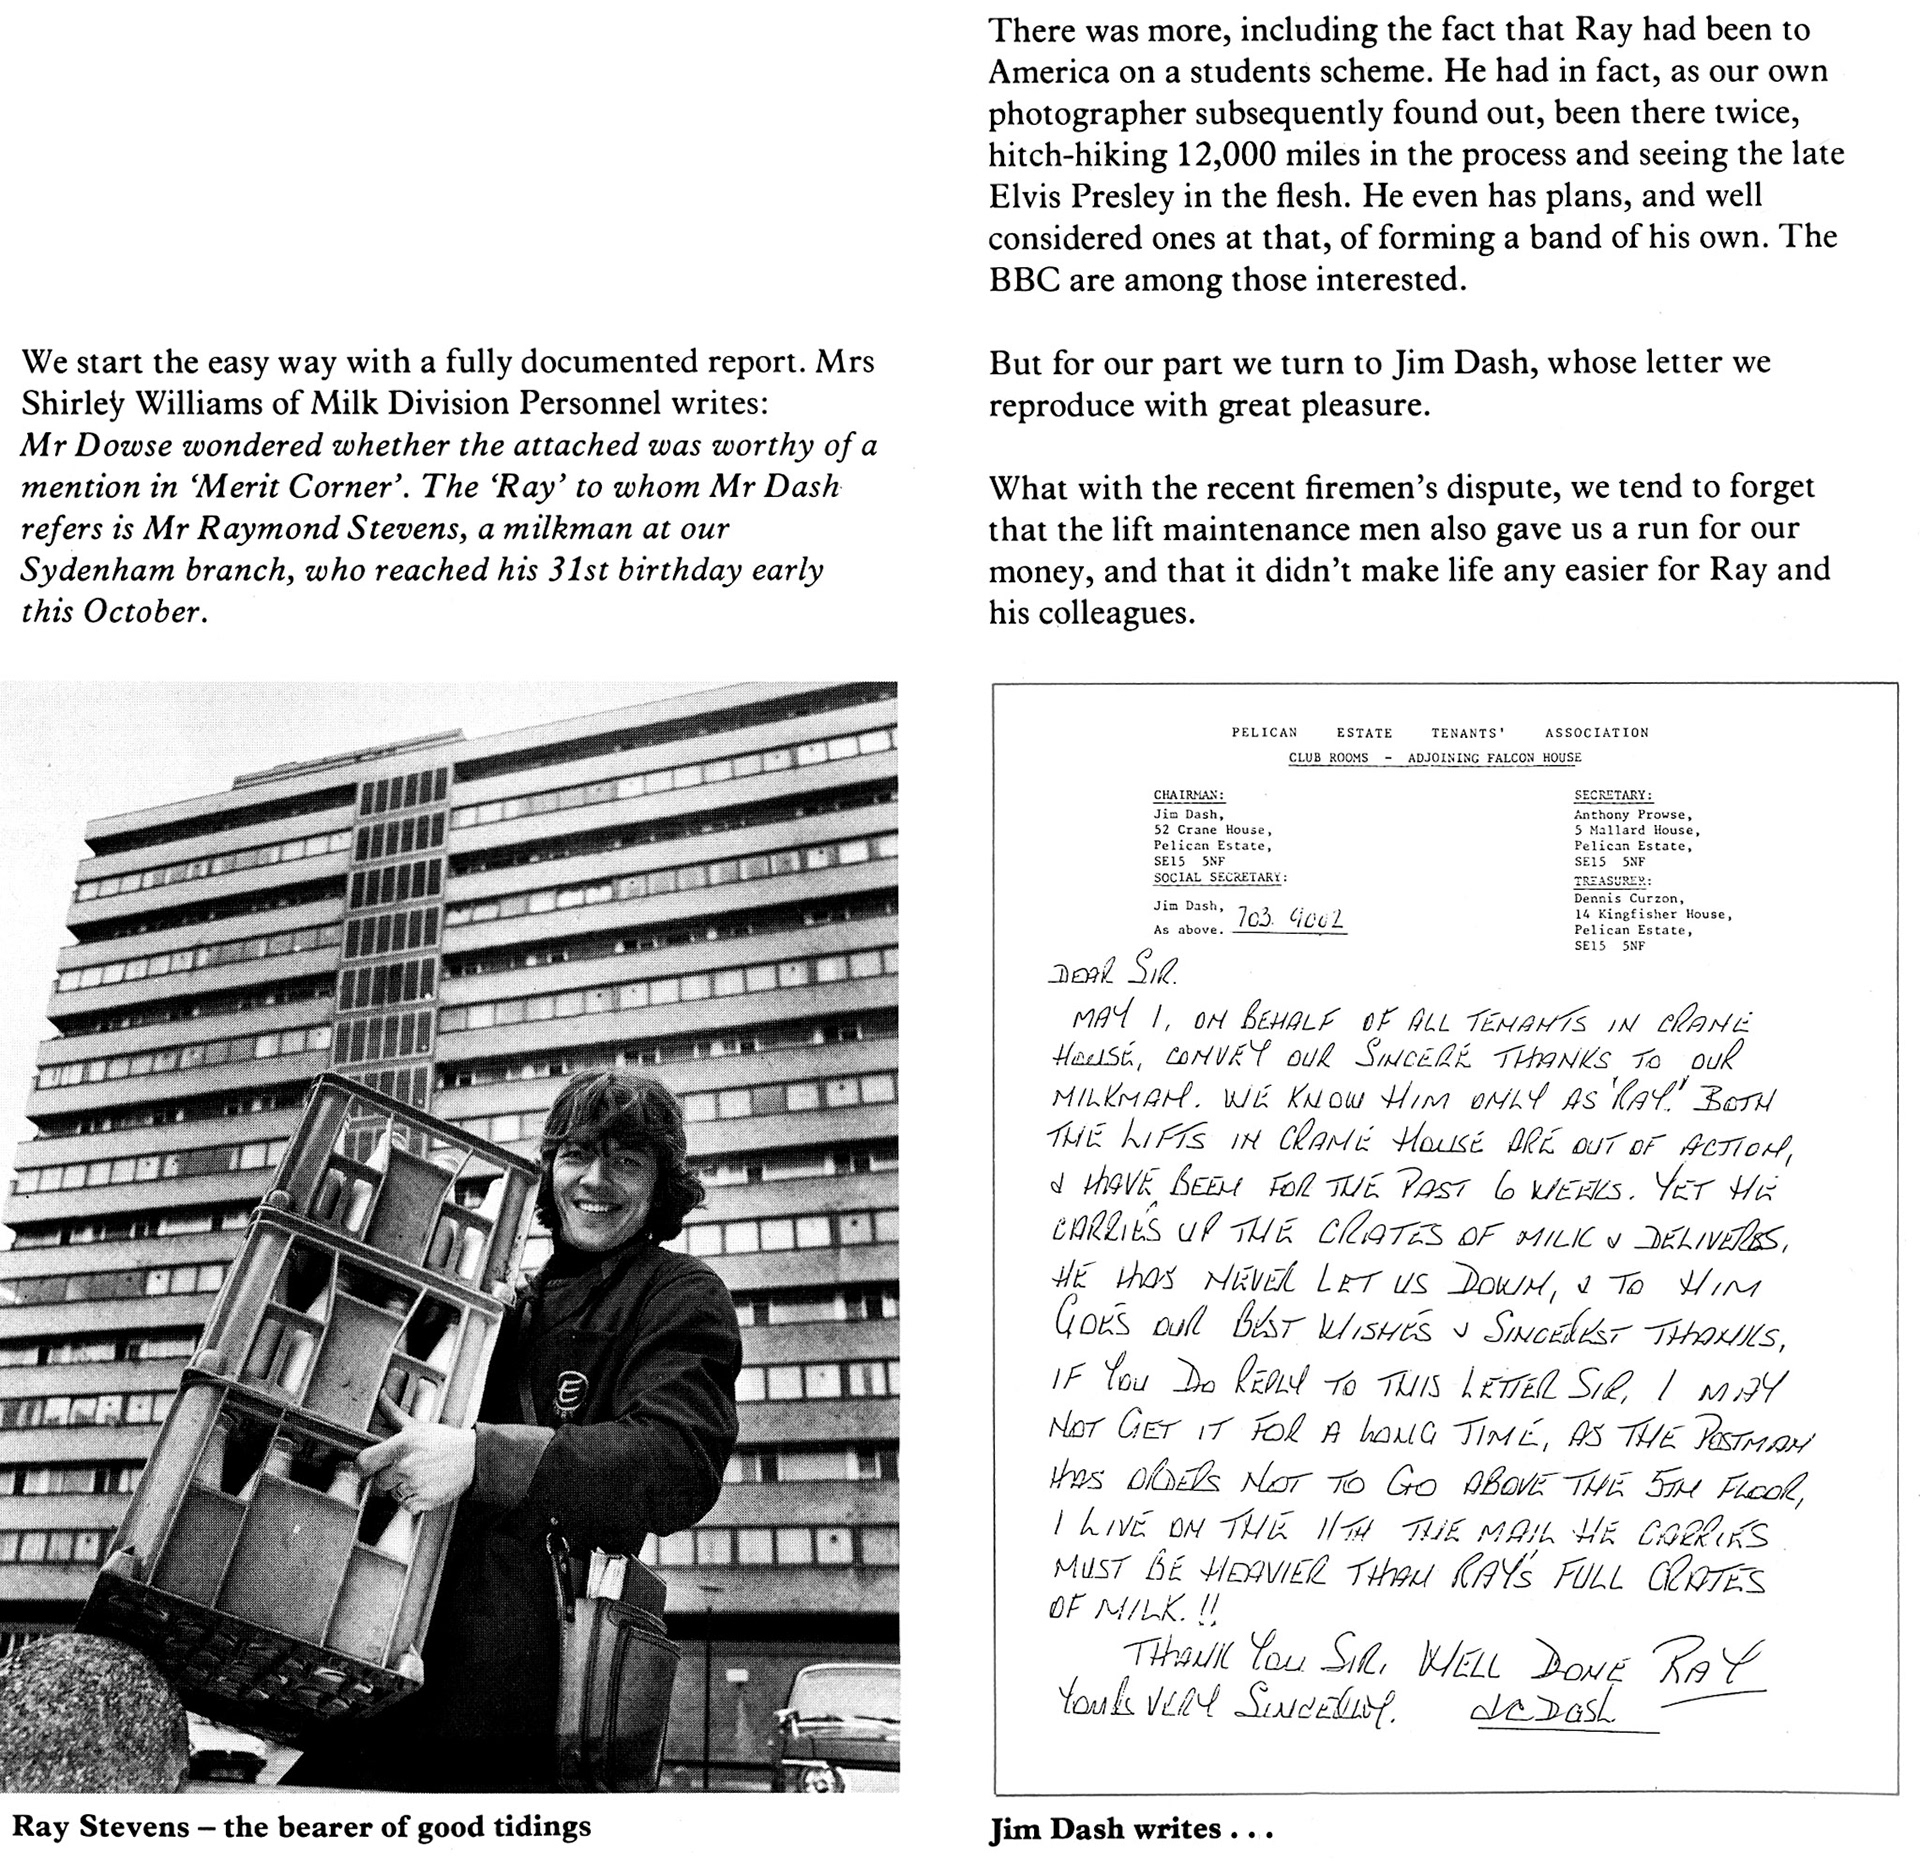 We start the easy way with a fully documented report. Mrs
Shirley Williams of Milk Division Personnel writes:
Mr Dowse wondered whether the attached was worthy of a
mention in ‘Merit Corner’. The ‘Ray’ to whom Mr Dash
refers is Mr Raymond Stevens, a milkman at our
Sydenham branch, who reached his 31st birthday early
this October.
E
Ray Stevens – the bearer of good tidings
There was more, including the fact that Ray had been to
America on a students scheme. He had in fact, as our own
photographer subsequently found out, been there twice,
hitch-hiking 12,000 miles in the process and seeing the late
Elvis Presley in the flesh. He even has plans, and well
considered ones at that, of forming a band of his own. The
BBC are among those interested.
But for our part we turn to Jim Dash, whose letter we
reproduce with great pleasure.
What with the recent firemen’s dispute, we tend to forget
that the lift maintenance men also gave us a run for our
money, and that it didn’t make life any easier for Ray and
his colleagues.
PELICAN ESTATE TENANTS' ASSOCIATION
CLUB ROOMS - ADJOINING FALCON HOUSE
CHAIRMAN:
Jim Dash,
52 Crane House,
Pelican Estate,
SE15 5NF
SOCIAL SECRETARY:
Jim Dash,
As above. 703 9002
SECRETARY:
Anthony Prowse,
5 Mallard House,
Pelican Estate,
SE15 5NF
TREASURER:
Dennis Curzon,
14 Kingfisher House,
Pelican Estate,
SE15 5NF
DEAR SIR.
MAY I, ON BEHALF OF ALL TENANTS IN CRANE
HOUSE, CONVEY OUR SINCERE THANKS TO OUR
MILKMAN. WE KNOW HIM ONLY AS 'RAY'. BOTH
THE LIFTS IN CRANE HOUSE ARE OUT OF ACTION,
& HAVE BEEN FOR THE PAST 6 WEEKS. YET HE
CARRIES UP THE CRATES OF MILK & DELIVERS,
HE HAS NEVER LET US DOWN, & TO HIM
GOES OUR BEST WISHES & SINCEREST THANKS,
IF YOU DO REPLY TO THIS LETTER SIR, I MAY
NOT GET IT FOR A LONG TIME, AS THE POSTMAN
HAS ORDERS NOT TO GO ABOVE THE 5TH FLOOR,
I LIVE ON THE 11TH THE MAIL HE CARRIES
MUST BE HEAVIER THAN RAY'S FULL CRATES
OF MILK. !!
THANK YOU SIR, WELL DONE RAY
YOURS VERY SINCERELY. JC Dash
Jim Dash writes . . .